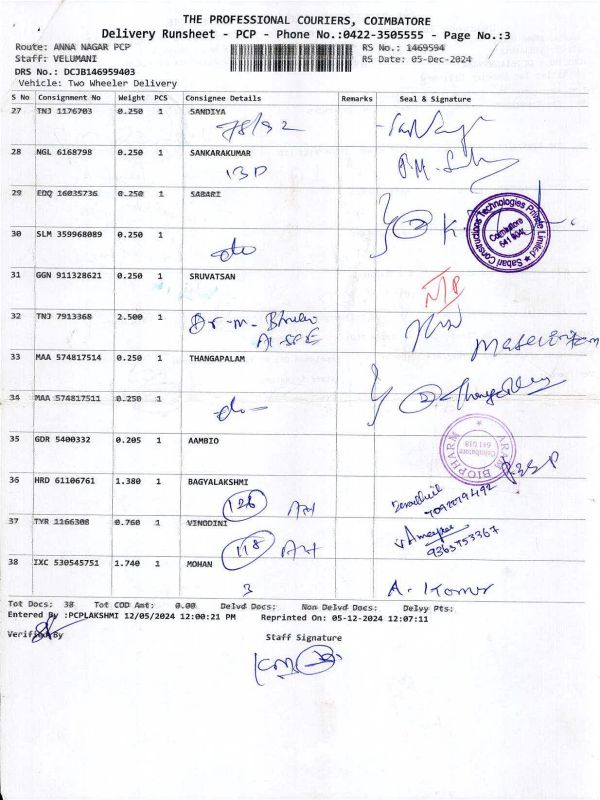 THE PROFESSIONAL COURIERS, COIMBATORE
Delivery Runsheet - PCP - Phone No.:0422-3505555 - Page No.:3
Route: ANNA NAGAR PCP RS No.: 1469594
Staff: VELUMANI RS Date: 05-Dec-2024
DRS No.: DCJB146959403
Vehicle: Two Wheeler Delivery
S No Consignment No Weight PCS Consignee Details Remarks Seal & Signature
27 TNJ 1176703 0.250 1 SANDIYA
78/92
28 NGL 6168798 0.250 1 SANKARAKUMAR
13D
29 EDQ 16035736 0.250 1 SABARI
Sabari Constructions Technologies Private Limited
Coimbatore
641 004
30 SLM 359968089 0.250 1
do
31 GGN 911328621 0.250 1 SRUVATSAN
N/P
32 TNJ 7913368 2.500 1 Dr-m-
33 MAA 574817514 0.250 1 THANGAPALAM
34 MAA 574817511 0.250 1
do
35 GDR 5400332 0.205 1 AAMBIO
BIOPHARM
Coimbatore
641 018
36 HRD 61106761 1.380 1 BAGYALAKSHMI
126
37 TYR 1166308 0.760 1 VINODINI
118
9363753367
38 IXC 530545751 1.740 1 MOHAN
3 A. Komer
Tot Docs: 38 Tot COD Amt: 0.00 Delvd Docs: Non Delvd Docs: Delvy Pts:
Entered By :PCPLAKSHMI 12/05/2024 12:00:21 PM Reprinted On: 05-12-2024 12:07:11
Verified By Staff Signature